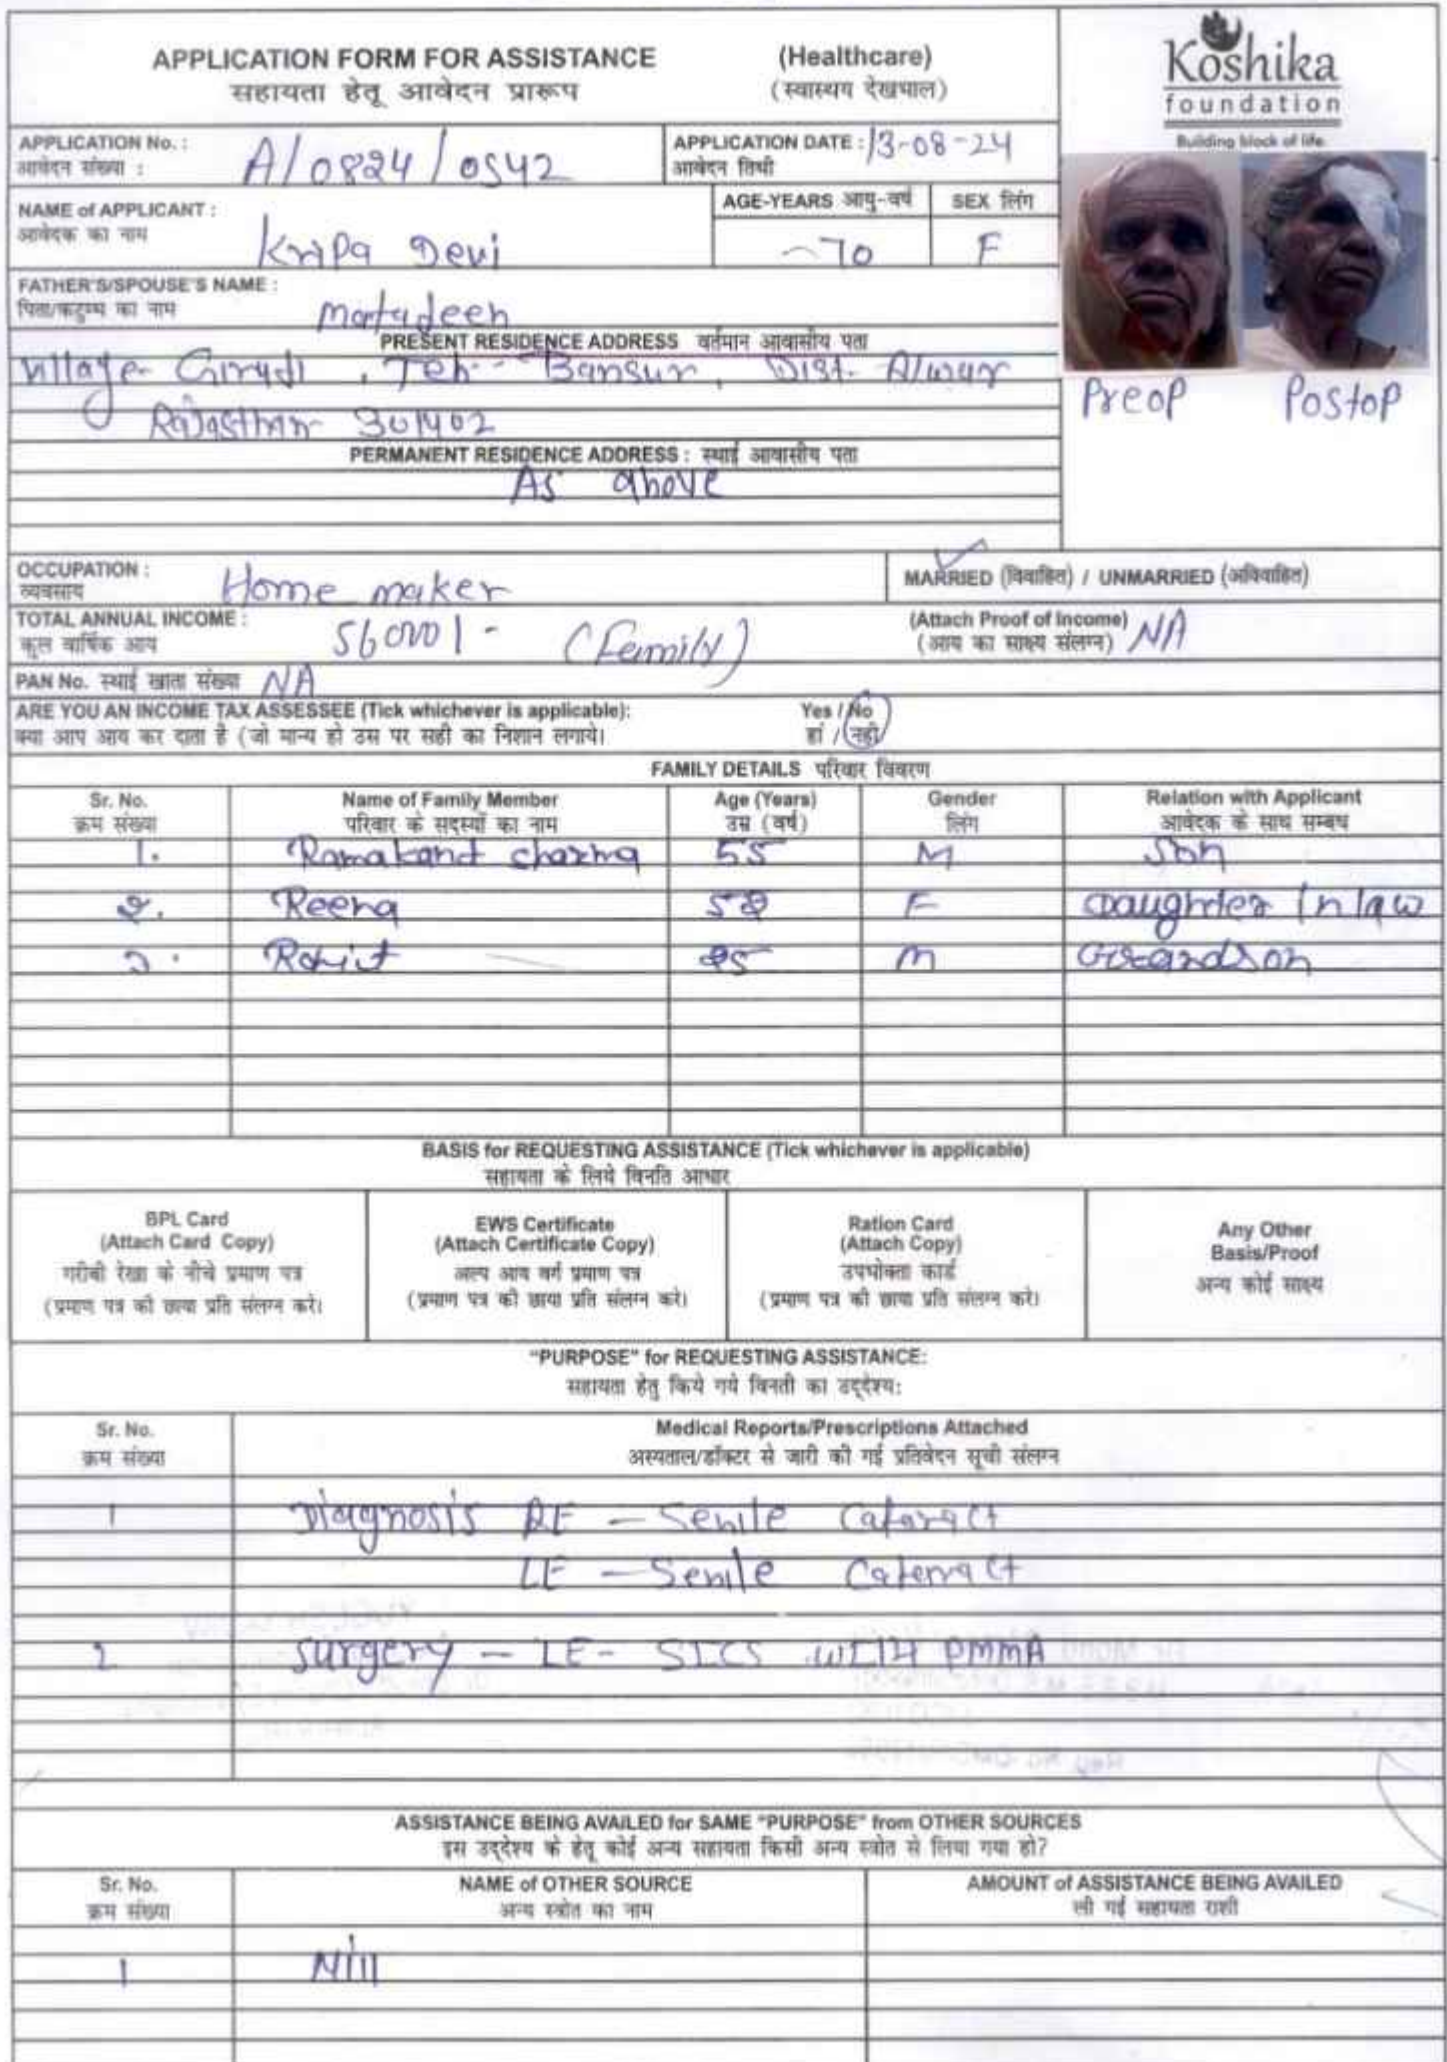 APPLICATION FORM FOR ASSISTANCE (Healthcare)
सहायता हेतू आवेदन प्रारूप (स्वास्थय देखभाल)
Koshika
foundation
Building block of life
APPLICATION No. : A/0824/0542
आवेदन संख्या :
APPLICATION DATE : 13-08-24
आवेदन तिथी
NAME of APPLICANT : Kripa Devi
आवेदक का नाम
AGE-YEARS आयु-वर्ष SEX लिंग
~70 F
FATHER'S/SPOUSE'S NAME :
पिता/कटुम्ब का नाम
matadeen
PRESENT RESIDENCE ADDRESS वर्तमान आवासीय पता
Village- , Teh- Bansur, Dist. Alwar
Rajasthan 301402
Preop Postop
PERMANENT RESIDENCE ADDRESS : स्थाई आवासीय पता
As above
OCCUPATION : Home maker
व्यवसाय
MARRIED (विवाहित) / UNMARRIED (अविवाहित)
TOTAL ANNUAL INCOME : 56000/- (Family)
कुल वार्षिक आय
(Attach Proof of Income) NA
(आय का साक्ष्य संलग्न)
PAN No. स्थाई खाता संख्या NA
ARE YOU AN INCOME TAX ASSESSEE (Tick whichever is applicable): Yes / No
क्या आप आय कर दाता है (जो मान्य हो उस पर सही का निशान लगाये। हां / नही
FAMILY DETAILS परिवार विवरण
Sr. No. Name of Family Member Age (Years) Gender Relation with Applicant
क्रम संख्या परिवार के सदस्यों का नाम उम्र (वर्ष) लिंग आवेदक के साथ सम्बध
1. Ramakand sharma 55 M Son
2. Reena F Daughter in law
3. Rohit 25 M Greandson
BASIS for REQUESTING ASSISTANCE (Tick whichever is applicable)
सहायता के लिये विनति आधार
BPL Card
(Attach Card Copy)
गरीबी रेखा के नीचे प्रमाण पत्र
(प्रमाण पत्र की छाया प्रति संलग्न करे।
EWS Certificate
(Attach Certificate Copy)
अल्प आय वर्ग प्रमाण पत्र
(प्रमाण पत्र की छाया प्रति संलग्न करे।
Ration Card
(Attach Copy)
उपभोक्ता कार्ड
(प्रमाण पत्र की छाया प्रति संलग्न करे।
Any Other
Basis/Proof
अन्य कोई साक्ष्य
"PURPOSE" for REQUESTING ASSISTANCE:
सहायता हेतु किये गये विनती का उद्देश्य:
Sr. No. Medical Reports/Prescriptions Attached
क्रम संख्या अस्पताल/डॉक्टर से जारी की गई प्रतिवेदन सूची संलग्न
1 Diagnosis RE - Senile Cataract
LE - Senile Caterract
2 surgery - LE- SICS WITH PMMA
ASSISTANCE BEING AVAILED for SAME "PURPOSE" from OTHER SOURCES
इस उद्देश्य के हेतू कोई अन्य सहायता किसी अन्य स्त्रोत से लिया गया हो?
Sr. No. NAME of OTHER SOURCE AMOUNT of ASSISTANCE BEING AVAILED
क्रम संख्या अन्य स्त्रोत का नाम ली गई सहायता राशी
1 Nill